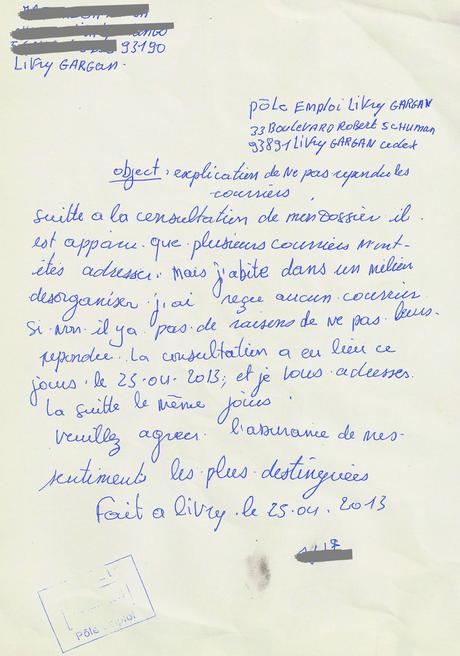 93190
Livry GARGAN.
pôle Emploi Livry GARGAN
33 Boulevard Robert SCHUMAN
93891 Livry GARGAN cedex
object : explication de ne pas rependu les
courriers
suitte a la consultation de mon Dossier il
est apparu que plusieurs courriers m'ont
étés adresser. Mais j'abite dans un milieu
desorganiser j,ai reçue aucun courrier
Si non il ya pas de raisons de ne pas leurs
repondre. La consultation a eu lieu ce
jours le 25-04-2013; et je vous adresses
la suitte le même jours.
veuillez agreer l'assurance de mes
sentiments les plus destinguées
Fait a livry le 25.04.2013
Pôle emploi